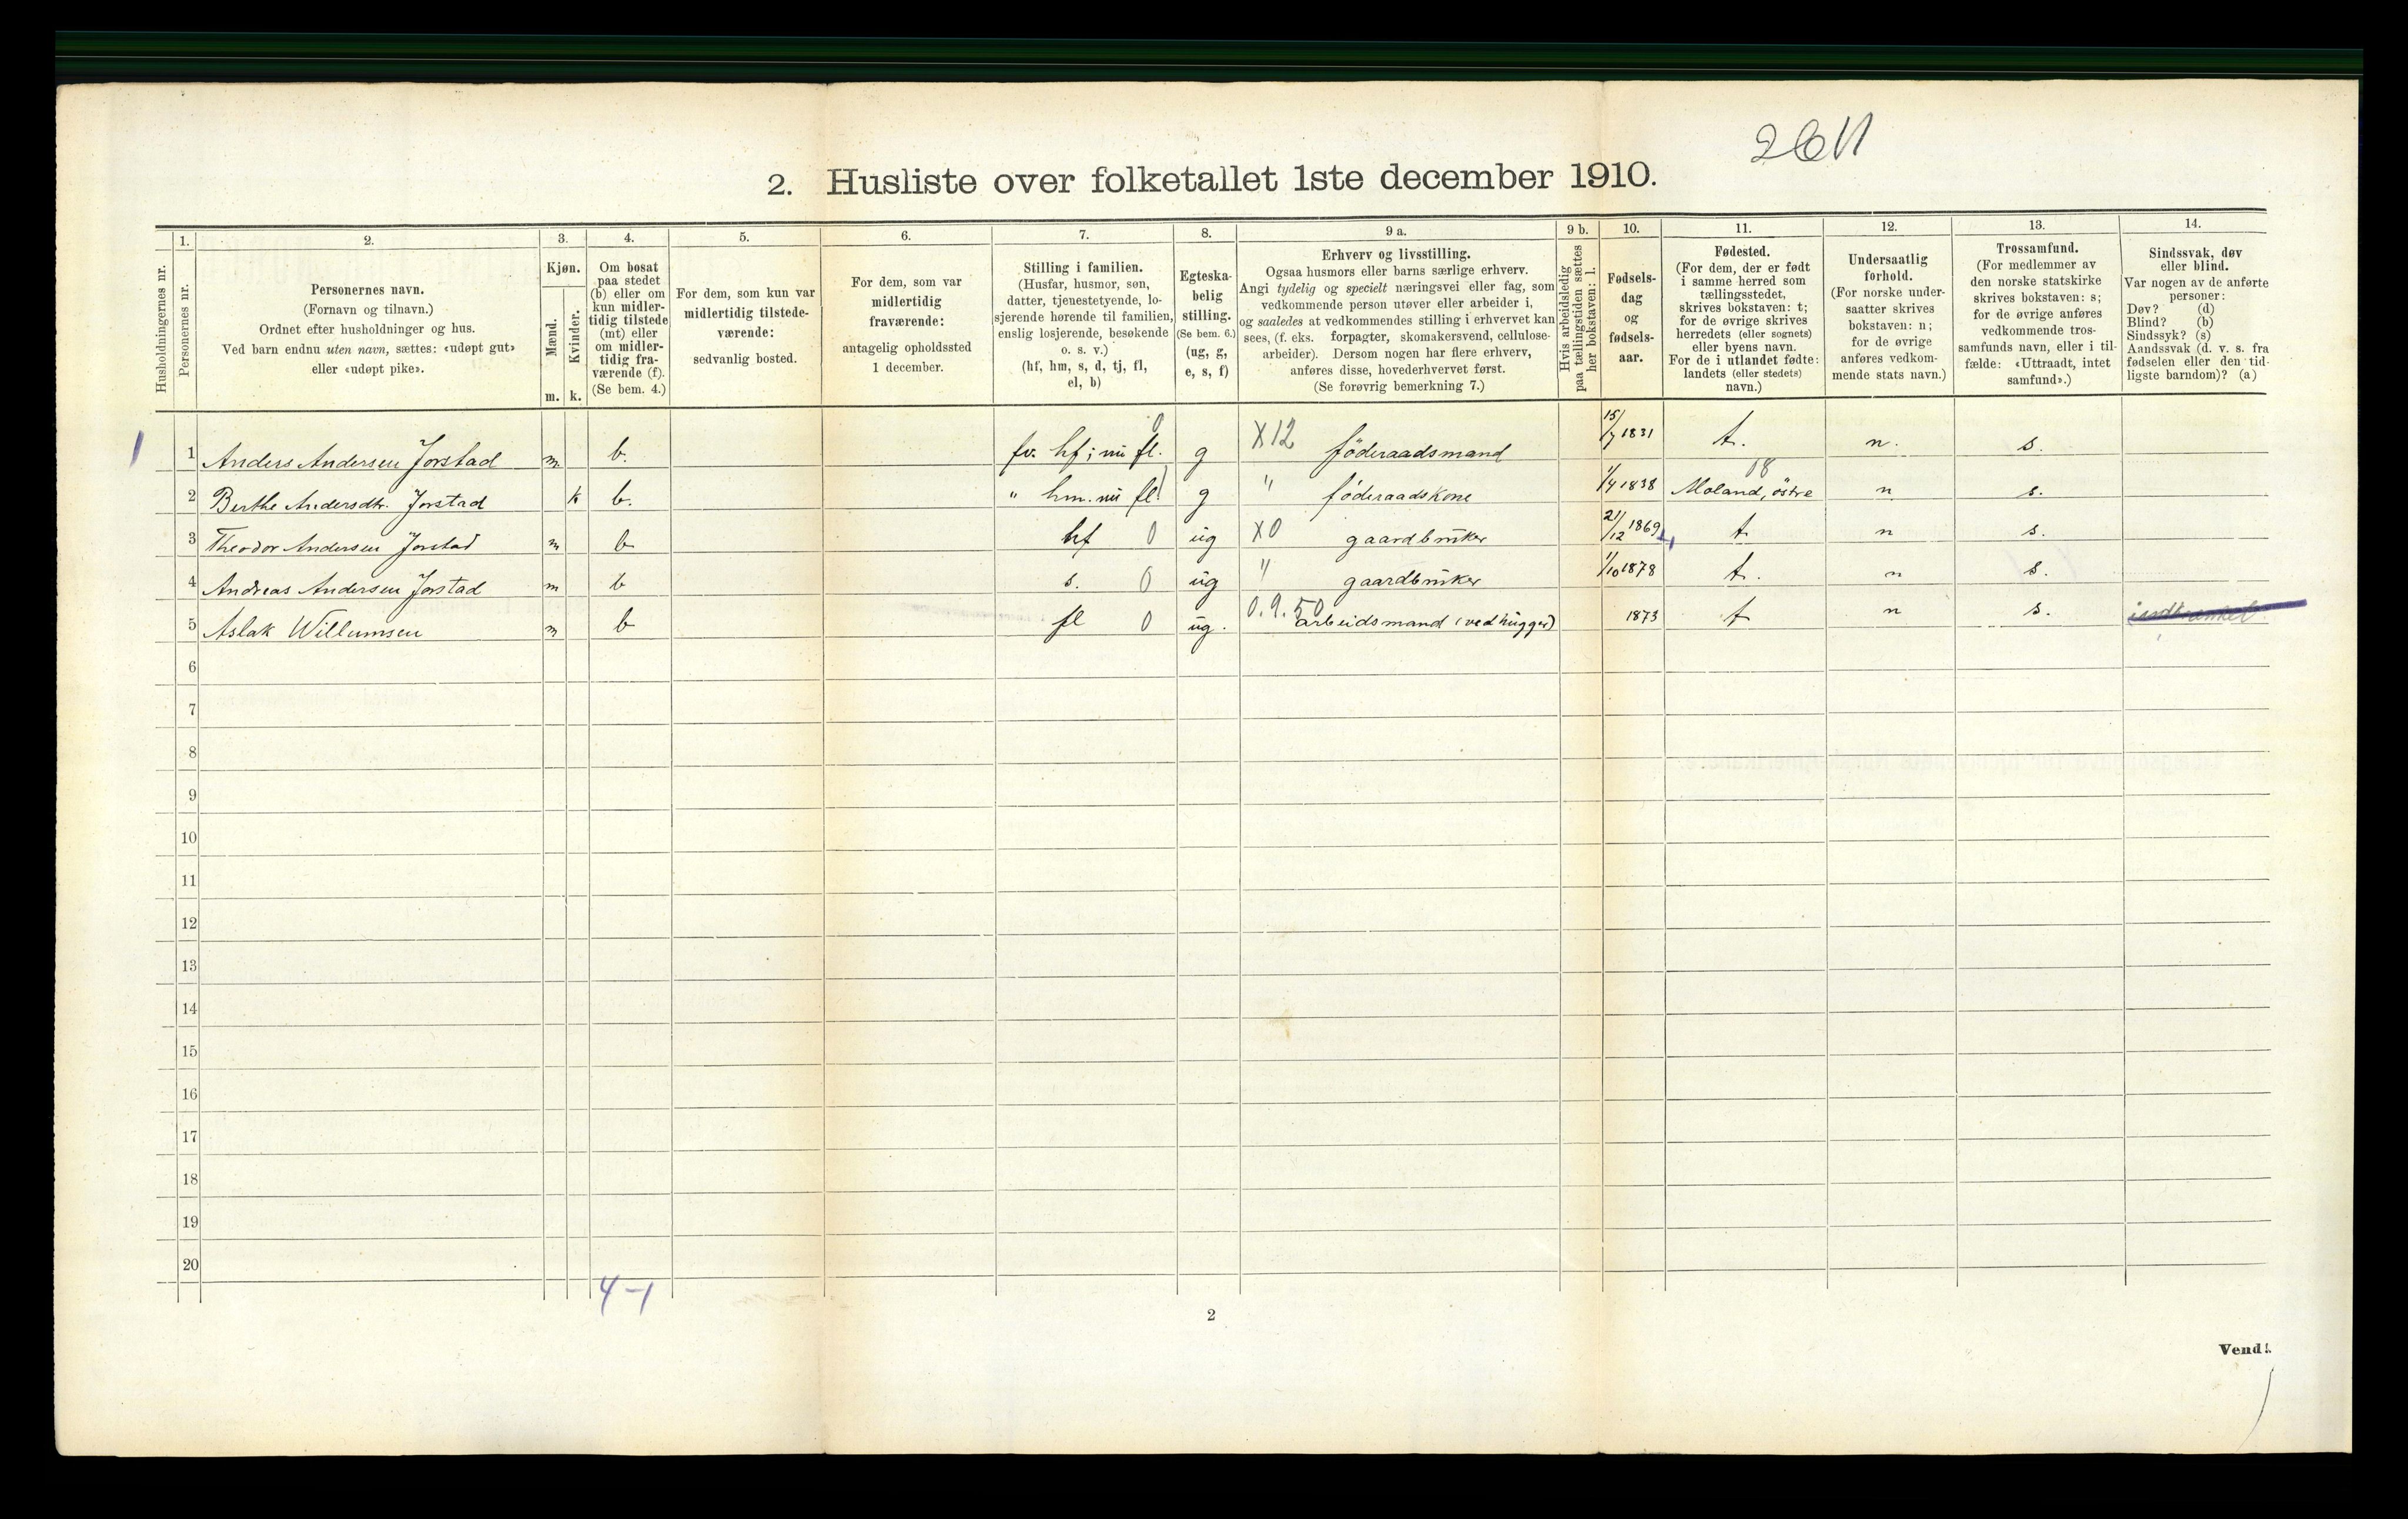 2611
2. Husliste over folketallet 1ste december 1910.
Husholdningernes nr.
1.
Personernes nr.
2.
Personernes navn.
(Fornavn og tilnavn.)
Ordnet efter husholdninger og hus.
Ved barn endnu uten navn, sættes: «udøpt gut»
eller «udøpt pike».
3.
Kjøn.
Mænd.
Kvinder.
m. k.
4.
Om bosat
paa stedet
(b) eller om
kun midler-
tidig tilstede
(mt) eller
om midler-
tidig fra-
værende (f).
(Se bem. 4.)
5.
For dem, som kun var
midlertidig tilstede-
værende:
sedvanlig bosted.
6.
For dem, som var
midlertidig
fraværende:
antagelig opholdssted
1 december.
7.
Stilling i familien.
(Husfar, husmor, søn,
datter, tjenestetyende, lo-
sjerende hørende til familien,
enslig losjerende, besøkende
o. s. v.)
(hf, hm, s, d, tj, fl,
el, b)
8.
Egteska-
belig
stilling.
(Se bem. 6.)
(ug, g,
e, s, f)
9 a.
Erhverv og livsstilling.
Ogsaa husmors eller barns særlige erhverv.
Angi tydelig og specielt næringsvei eller fag, som
vedkommende person utøver eller arbeider i,
og saaledes at vedkommendes stilling i erhvervet kan
sees, (f. eks. forpagter, skomakersvend, cellulose-
arbeider). Dersom nogen har flere erhverv,
anføres disse, hovederhvervet først.
(Se forøvrig bemerkning 7.)
9 b.
Hvis arbeidsledig
paa tællingstiden sættes
her bokstaven: l.
10.
Fødsels-
dag
og
fødsels-
aar.
11.
Fødested.
(For dem, der er født
i samme herred som
tællingsstedet,
skrives bokstaven: t;
for de øvrige skrives
herredets (eller sognets)
eller byens navn.
For de i utlandet fødte:
landets (eller stedets)
navn.)
12.
Undersaatlig
forhold.
(For norske under-
saatter skrives
bokstaven: n;
for de øvrige
anføres vedkom-
mende stats navn.)
13.
Trossamfund.
(For medlemmer av
den norske statskirke
skrives bokstaven: s;
for de øvrige anføres
vedkommende tros-
samfunds navn, eller i til-
fælde: «Uttraadt, intet
samfund».)
14.
Sindssvak, døv
eller blind.
Var nogen av de anførte
personer:
Døv? (d)
Blind? (b)
Sindssyk? (s)
Aandssvak (d. v. s. fra
fødselen eller den tid-
ligste barndom)? (a)
1 1 Anders Andersen Jorstad m b. fv. hf; nu fl. 0 g X12 föderaadsmand 15/7 1831 t. n. s.
2 Berthe Andersdtr. Jorstad k b. " hm. nu fl. g " föderaadskone 1/4 1838 Moland, östre 08 n s.
3 Theodor Andersen Jorstad m b hf 0 ug X0 gaardbruker 21/12 1869 t n s.
4 Andreas Andersen Jorstad m b s. 0 ug " gaardbruker 1/10 1878 t. n s.
5 Aslak Willumsen m b fl 0 ug. 0.9.50 arbeidsmand (vedhugger) 1873 t n s.
6
7
8
9
10
11
12
13
14
15
16
17
18
19
20
4-1
2
Vend!